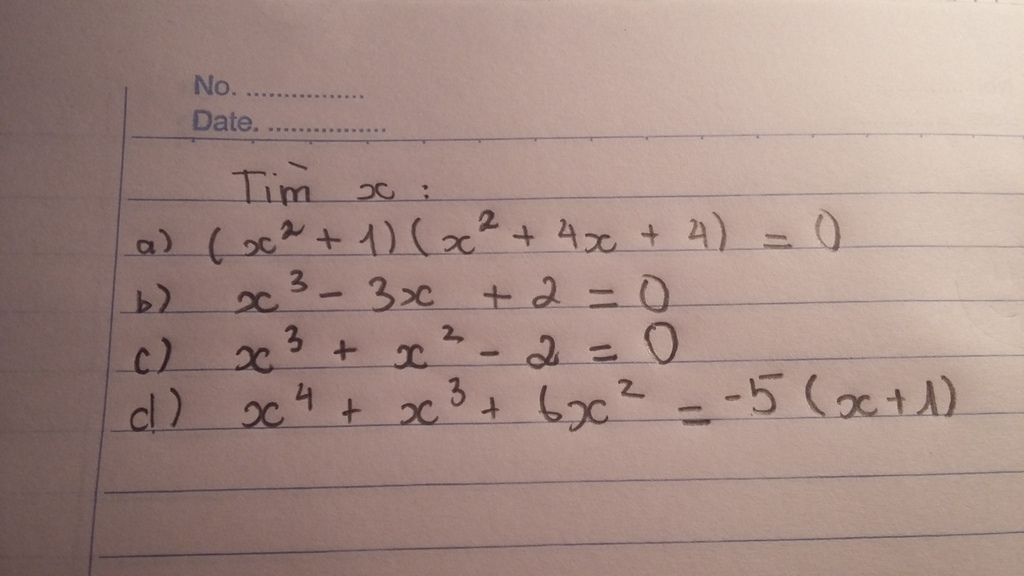 No. ................
Date. ................
Tìm x :
a) (x² + 1)(x² + 4x + 4) = 0
b) x³ - 3x + 2 = 0
c) x³ + x² - 2 = 0
d) x⁴ + x³ + 6x² = -5 (x+1)